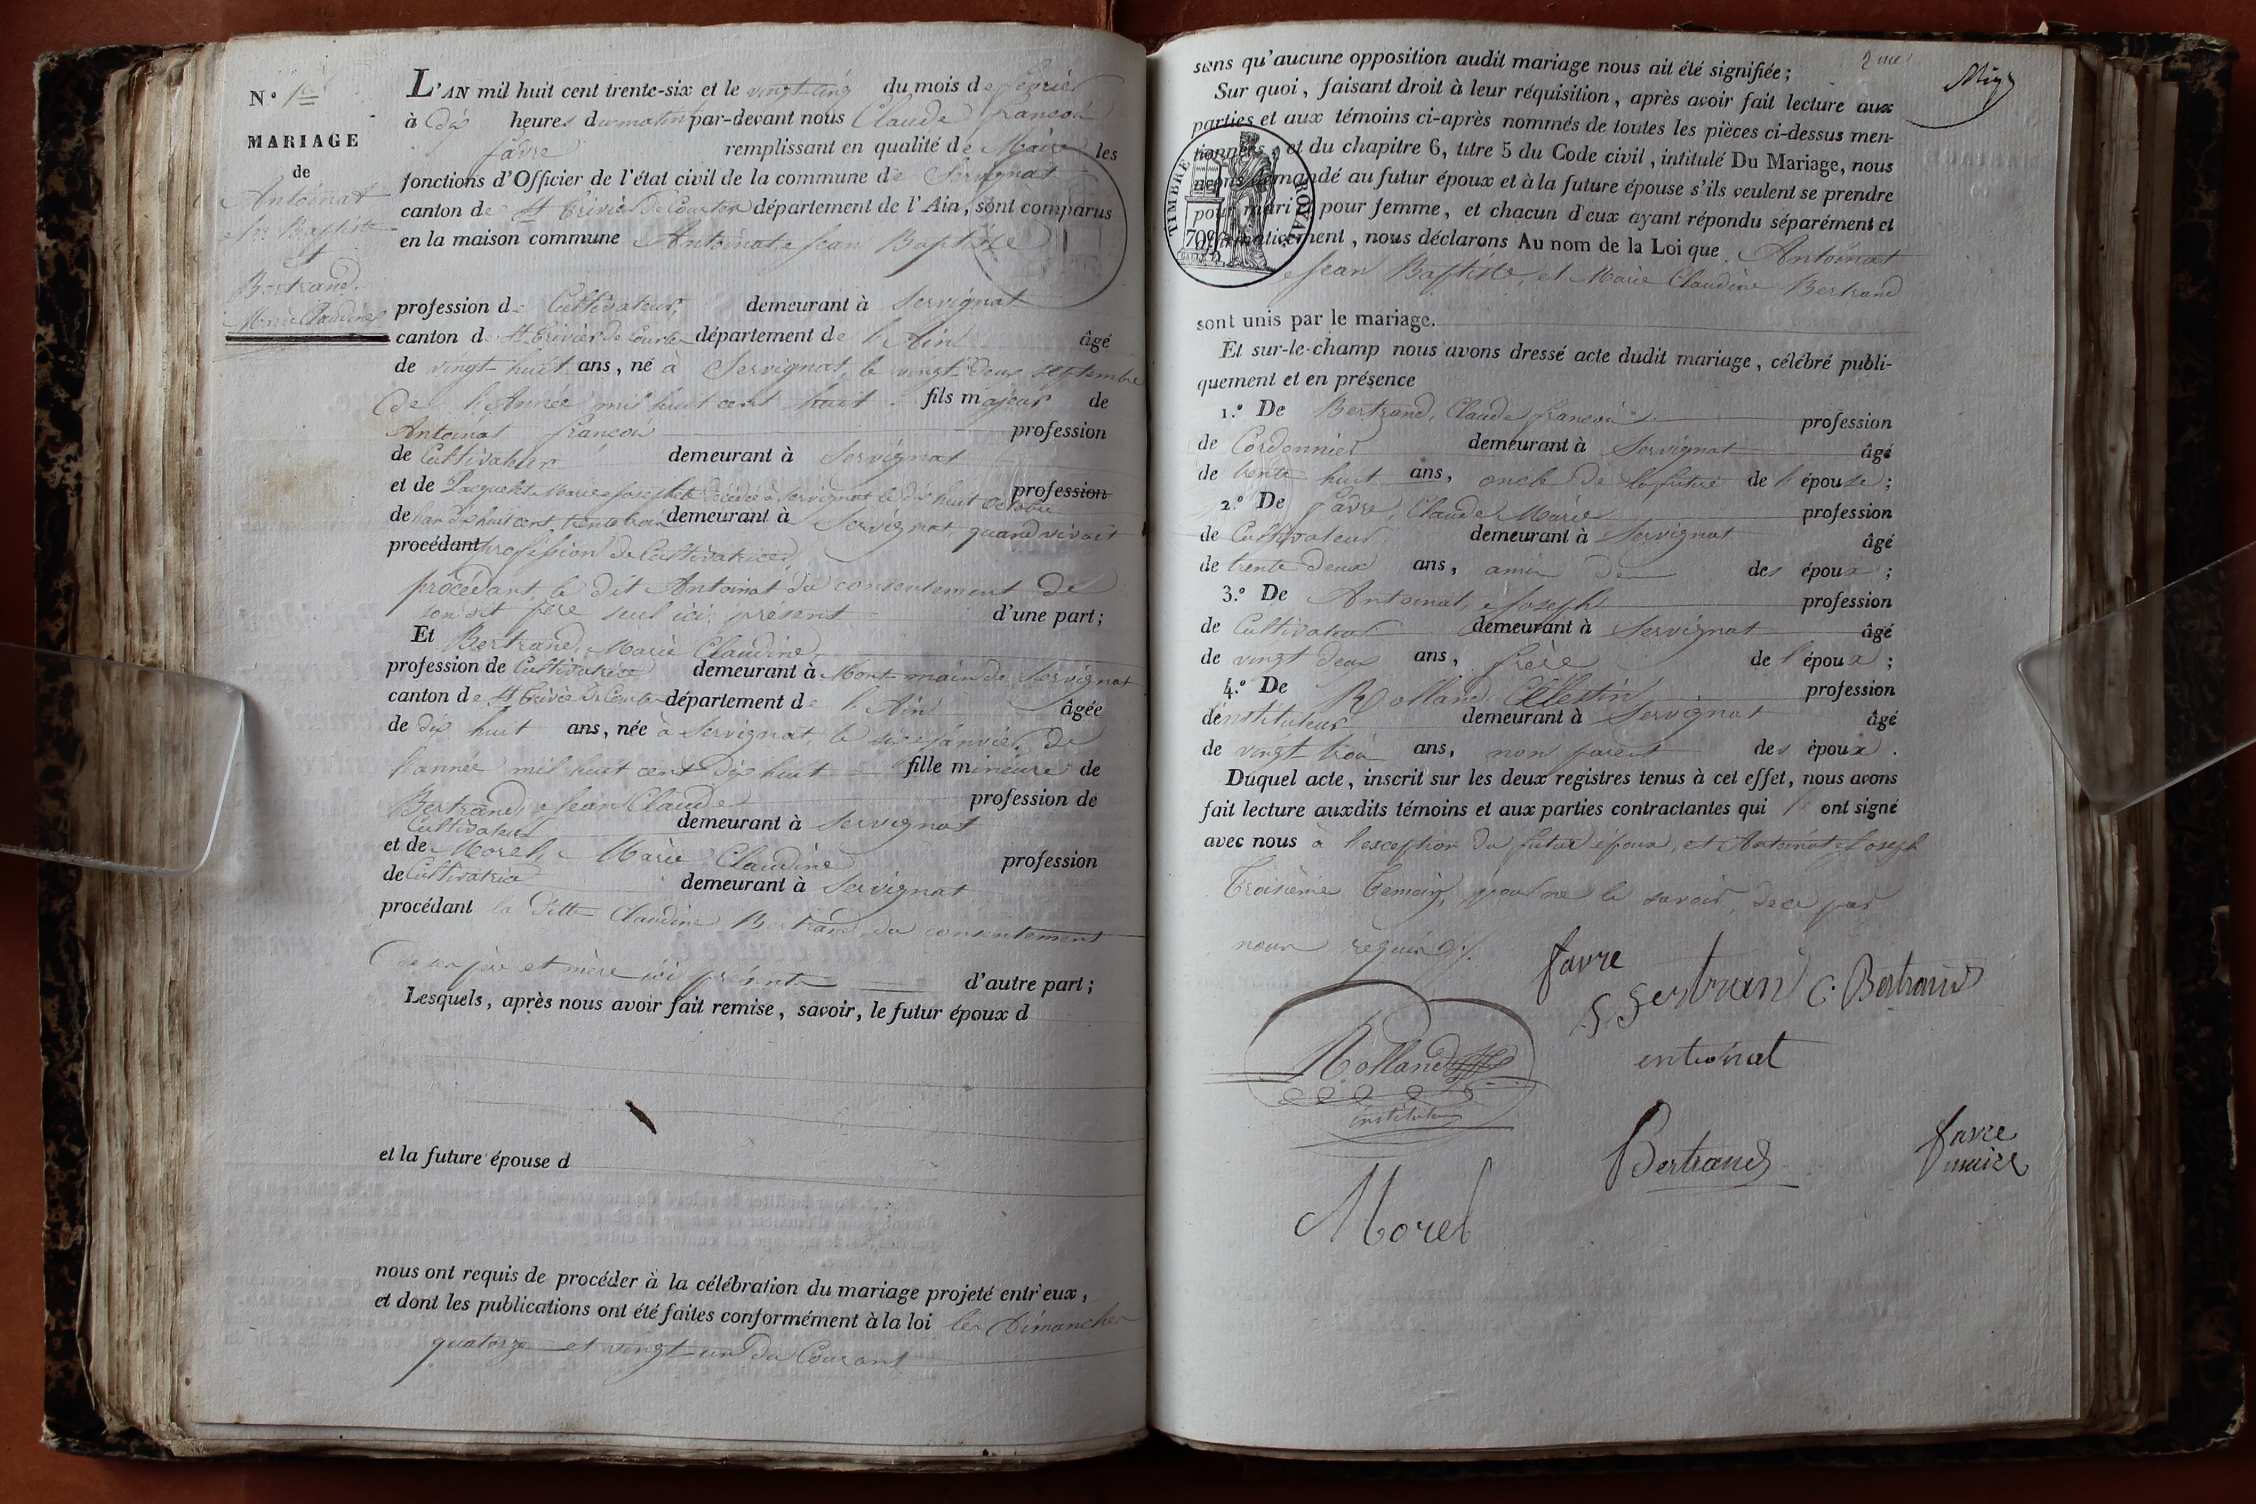 N.º 1er
MARIAGE
de
Antoinat
Jn Baptiste
et
Bertrand
Marie Claudine
L'AN mil huit cent trente-six et le vingt cinq du mois de fevrier
à dix heures du matin par-devant nous Claude françois
favre remplissant en qualité de Maire les
fonctions d'Officier de l'état civil de la commune de Servignat
canton de St Trivier de Courtes département de l'Ain, sont comparus
en la maison commune Antoinat Jean Baptiste
profession de Cultivateur, demeurant à Servignat
canton de St Trivier de Courtes département de l'Ain âgé
de vingt huit ans, né à Servignat, le vingt deux septembre
de l'Année mil huit cent huit fils majeur de
Antoinat françois profession
de Cultivateur demeurant à Servignat
et de Marie Josephte décédée à Servignat le dix huit octobre profession
de l'an dix huit cent trente trois demeurant à Servignat, quand vivait
procédant profession de Cultivatrice,
procédant le dit Antoinat du consentement de
son dit père seul ici présent d'une part;
Et Bertrand, Marie Claudine,
profession de Cultivatrice demeurant à Mont main de Servignat
canton de St Trivier de Courtes département de l'Ain âgée
de dix huit ans, née à Servignat, le six Janvier de
l'année mil huit cent dix huit fille mineure de
Bertrand Jean Claude profession de
Cultivateur demeurant à Servignat
et de Morel, Marie Claudine profession
de Cultivatrice demeurant à Servignat
procédant la ditte Claudine Bertrand du consentement
de ses père et mère ici présents d'autre part;
Lesquels, après nous avoir fait remise, savoir, le futur époux d
et la future épouse d
nous ont requis de procéder à la célébration du mariage projeté entr'eux,
et dont les publications ont été faites conformément à la loi les Dimanches
quatorze et vingt-un du Courant
2me
sans qu'aucune opposition audit mariage nous ait été signifiée;
Sur quoi, faisant droit à leur réquisition, après avoir fait lecture aux
parties et aux témoins ci-après nommés de toutes les pièces ci-dessus men-
tionnées, et du chapitre 6, titre 5 du Code civil, intitulé Du Mariage, nous
avons demandé au futur époux et à la future épouse s'ils veulent se prendre
pour mari et pour femme, et chacun d'eux ayant répondu séparément et
affirmativement, nous déclarons Au nom de la Loi que Antoinat
Jean Baptiste, et Marie Claudine Bertrand
TIMBRE ROYAL
70c
sont unis par le mariage.
Et sur-le-champ nous avons dressé acte dudit mariage, célébré publi-
quement et en présence
1.º De Bertrand, Claude françois profession
de Cordonnier demeurant à Servignat âgé
de trente huit ans, oncle de la future de l'épouse;
2.º De favre, Claude Marie profession
de Cultivateur demeurant à Servignat âgé
de trente deux ans, ami de des époux;
3.º De Antoinat, Joseph profession
de Cultivateur demeurant à Servignat âgé
de vingt deux ans, frère de l'époux;
4.º De Rolland Célestin profession
d'instituteur demeurant à Servignat âgé
de vingt trois ans, non parent des époux.
Duquel acte, inscrit sur les deux registres tenus à cet effet, nous avons
fait lecture auxdits témoins et aux parties contractantes qui l' ont signé
avec nous à l'exception du futur époux, et Antoinat Joseph
Troisième Temoin, pour ne le savoir, de ce par
nous requis
favre
Bertrand C. Bertrand
Rolland
instituteur
antoinat
Bertrand
favre
maire
Morel